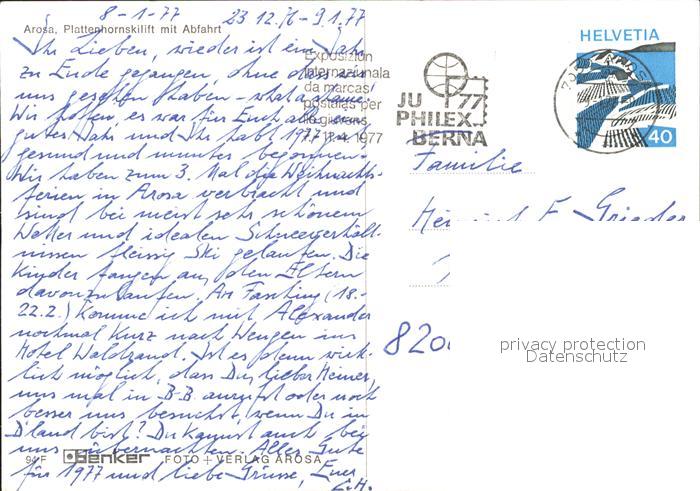 8-1-77 23.12.76-9.1.77
Arosa, Plattenhornskilift mit Abfahrt
Ihr Lieben, wieder ist ein Jahr
zu Ende gegangen, ohne dass wir
uns gesehen haben - what a shame.
Wir hoffen, es war für Euch alle ein
gutes Jahr und Ihr habt 1977
gesund und munter begonnen.
Wir haben zum 3. Mal die Weihnachts-
ferien in Arosa verbracht und
sind bei meist sehr schönem
Wetter und idealen Schneeverhält-
nissen fleissig Ski gelaufen. Die
Kinder fangen an, den Eltern
davonzulaufen. An Fasching (18.-
22.2.) komme ich mit Alexander
nochmal kurz nach Wengen ins
Hotel Waldrand. Ist es denn wirk-
lich möglich, dass Du, lieber Heiner,
uns mal in B-B anrufst oder noch
besser uns besuchst, wenn Du in
D'land bist? Du kannst auch bei
uns übernachten. Alles Gute
für 1977 und liebe Grüsse, Euer
E.H.
94 F Denker FOTO + VERLAG AROSA
Exposiziun
internaziunala
da marcas
postalas per
giuvens
11.4.1977
JU 77
PHILEX
BERNA
HELVETIA
40
Familie
F. Grieder
820
privacy protection
Datenschutz